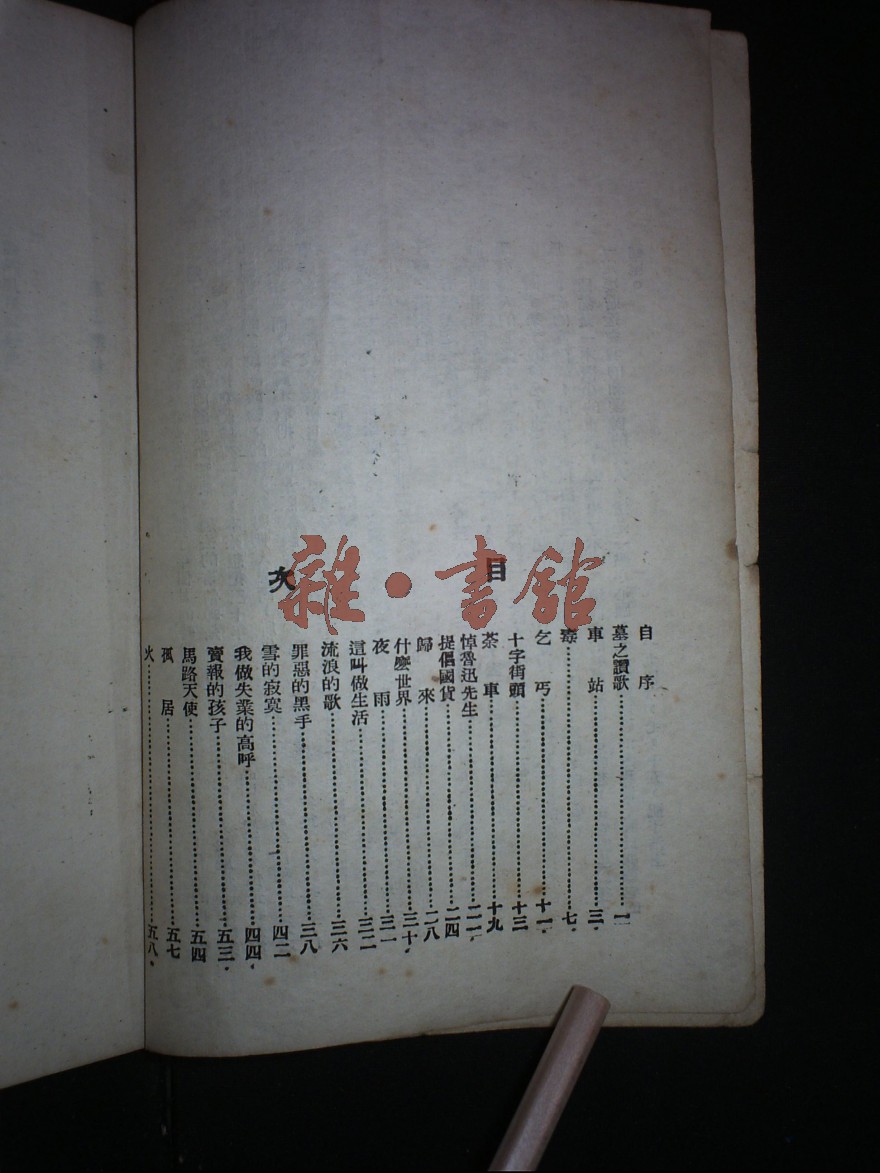 目次
自序
墓之讚歌……一
車站……三
毒……七
乞丐……十一
十字街頭……十三
茶車……十九
悼魯迅先生……二一
提倡國貨……二四
歸來……二八
什麼世界……三十
夜雨……三一
這叫做生活……三二
流浪的歌……三六
罪惡的黑手……三八
雪的寂寞……四二
我做失業的高呼……四四
賣報的孩子……五三
馬路天使……五四
孤居……五七
火……五八
雜·書館